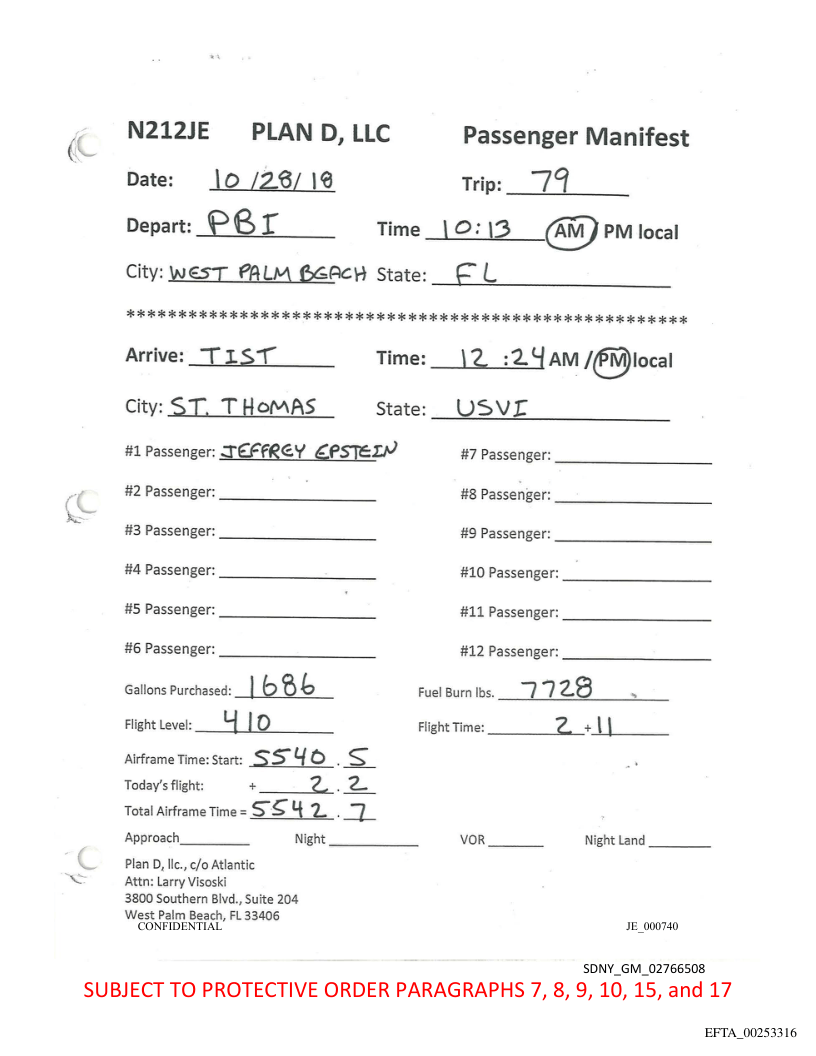 N212JE PLAN D, LLC Passenger Manifest
Date: 10/28/18 Trip: 79
Depart: PBI Time 10:13 AM / PM local
City: WEST PALM BEACH State: FL
******************************************************
Arrive: TIST Time: 12:24 AM / PM local
City: ST. THOMAS State: USVI
#1 Passenger: JEFFREY EPSTEIN #7 Passenger:
#2 Passenger: #8 Passenger:
#3 Passenger: #9 Passenger:
#4 Passenger: #10 Passenger:
#5 Passenger: #11 Passenger:
#6 Passenger: #12 Passenger:
Gallons Purchased: 1686 Fuel Burn lbs. 7728
Flight Level: 410 Flight Time: 2 + 11
Airframe Time: Start: 5540.5
Today's flight: + 2.2
Total Airframe Time = 5542.7
Approach Night VOR Night Land
Plan D, llc., c/o Atlantic
Attn: Larry Visoski
3800 Southern Blvd., Suite 204
West Palm Beach, FL 33406
CONFIDENTIAL JE_000740
SDNY_GM_02766508
SUBJECT TO PROTECTIVE ORDER PARAGRAPHS 7, 8, 9, 10, 15, and 17
EFTA_00253316